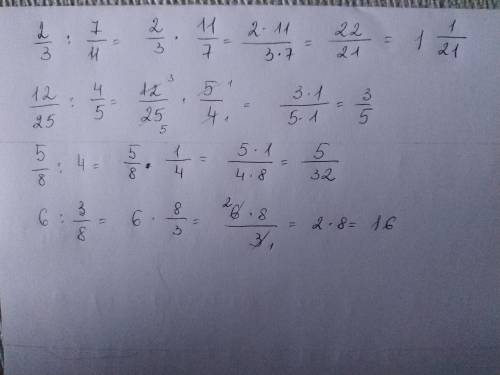 2/3 : 7/11 = 2/3 · 11/7 = 2·11/3·7 = 22/21 = 1 1/21
12/25 : 4/5 = 12 3/25 5 · 5 1/4 1 = 3·1/5·1 = 3/5
5/8 : 4 = 5/8 · 1/4 = 5·1/4·8 = 5/32
6 : 3/8 = 6 · 8/3 = 2 6·8/3 1 = 2·8= 16